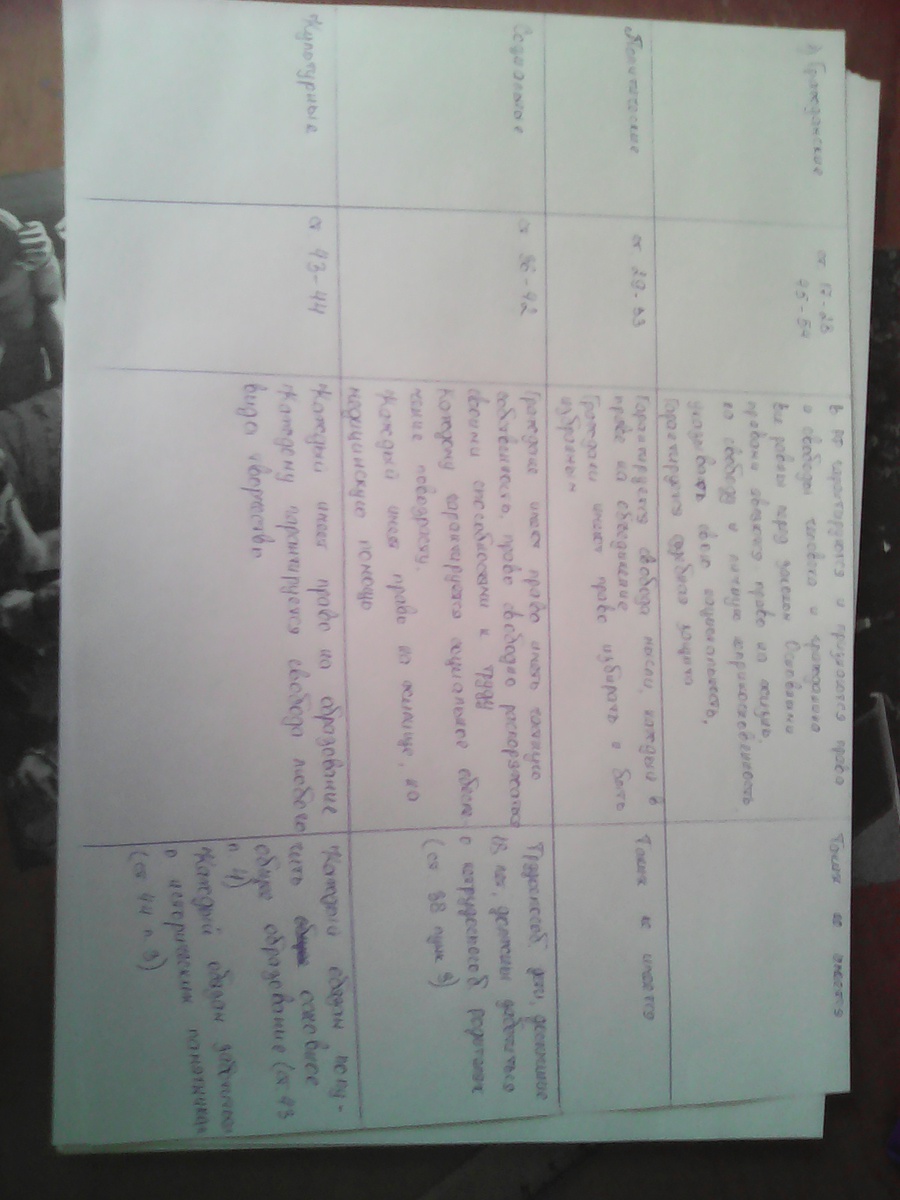 а) Гражданские
ст 17-28
45-54
в РФ гарантируются и признаются права
и свободы человека и гражданина
все равны перед законом Основными
правами являются право на жизнь,
на свободу и личную неприкосновенность
указывать свою национальность,
Гарантируется судебная защита
Таких не имеется
Политические
ст 29-33
Гарантируется свобода мысли, каждый в
праве на объединение
Граждане имеют право избирать и быть
избранным
Таких не имеется
Социальные
ст 36-42
Граждане имеют право иметь частную
собственность, право свободно распоряжаться
своими способностями к труду
Каждому гарантируется социальное обеспе-
чение по возрасту.
Каждый имеет право на жилище, на
медицинскую помощь
Трудоспособ. дети, достигшие
18 лет, должны заботиться
о нетрудоспособ родителях
(ст 38 пункт 3)
Культурные
ст 43-44
Каждый имеет право на образование
Каждому гарантируется свобода любого
вида творчества
Каждый обязан полу-
чить основное
общее образование (ст 43
п 4)
Каждый обязан
о исторических памятниках
(ст 44 п 3)